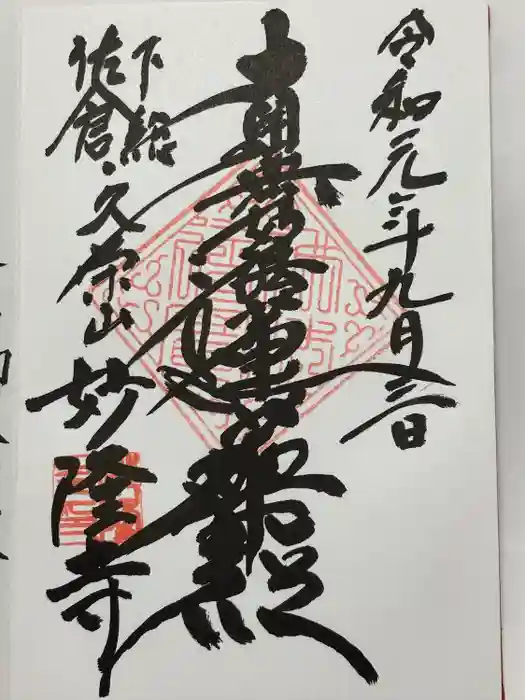 令和元年九月三日
南無妙法蓮華経
下総
佐倉・久栄山妙隆寺